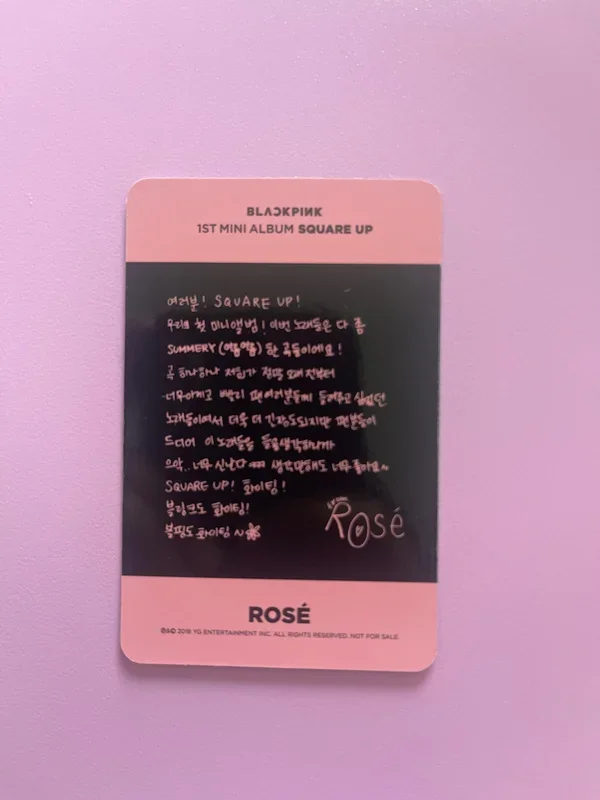 BLACKPINK
1ST MINI ALBUM SQUARE UP
여러분! SQUARE UP!
우리의 첫 미니앨범! 이번 노래들은 다 좀
SUMMERY (여름여름) 한 곡들이에요!
곡 하나하나 저희가 정말 오래전부터
너무아끼고 빨리 팬여러분들께 들려주고 싶었던
노래들이여서 더욱 더 긴장도되지만 팬분들이
드디어 이 노래들을 들을생각하니까
으악.. 너무 신난다 생각만해도 너무 좋아요~
SQUARE UP! 화이팅!
블링크도 화이팅!
블핑도 화이팅 ~
ROSé
ROSÉ
℗&© 2018 YG ENTERTAINMENT INC. ALL RIGHTS RESERVED. NOT FOR SALE.